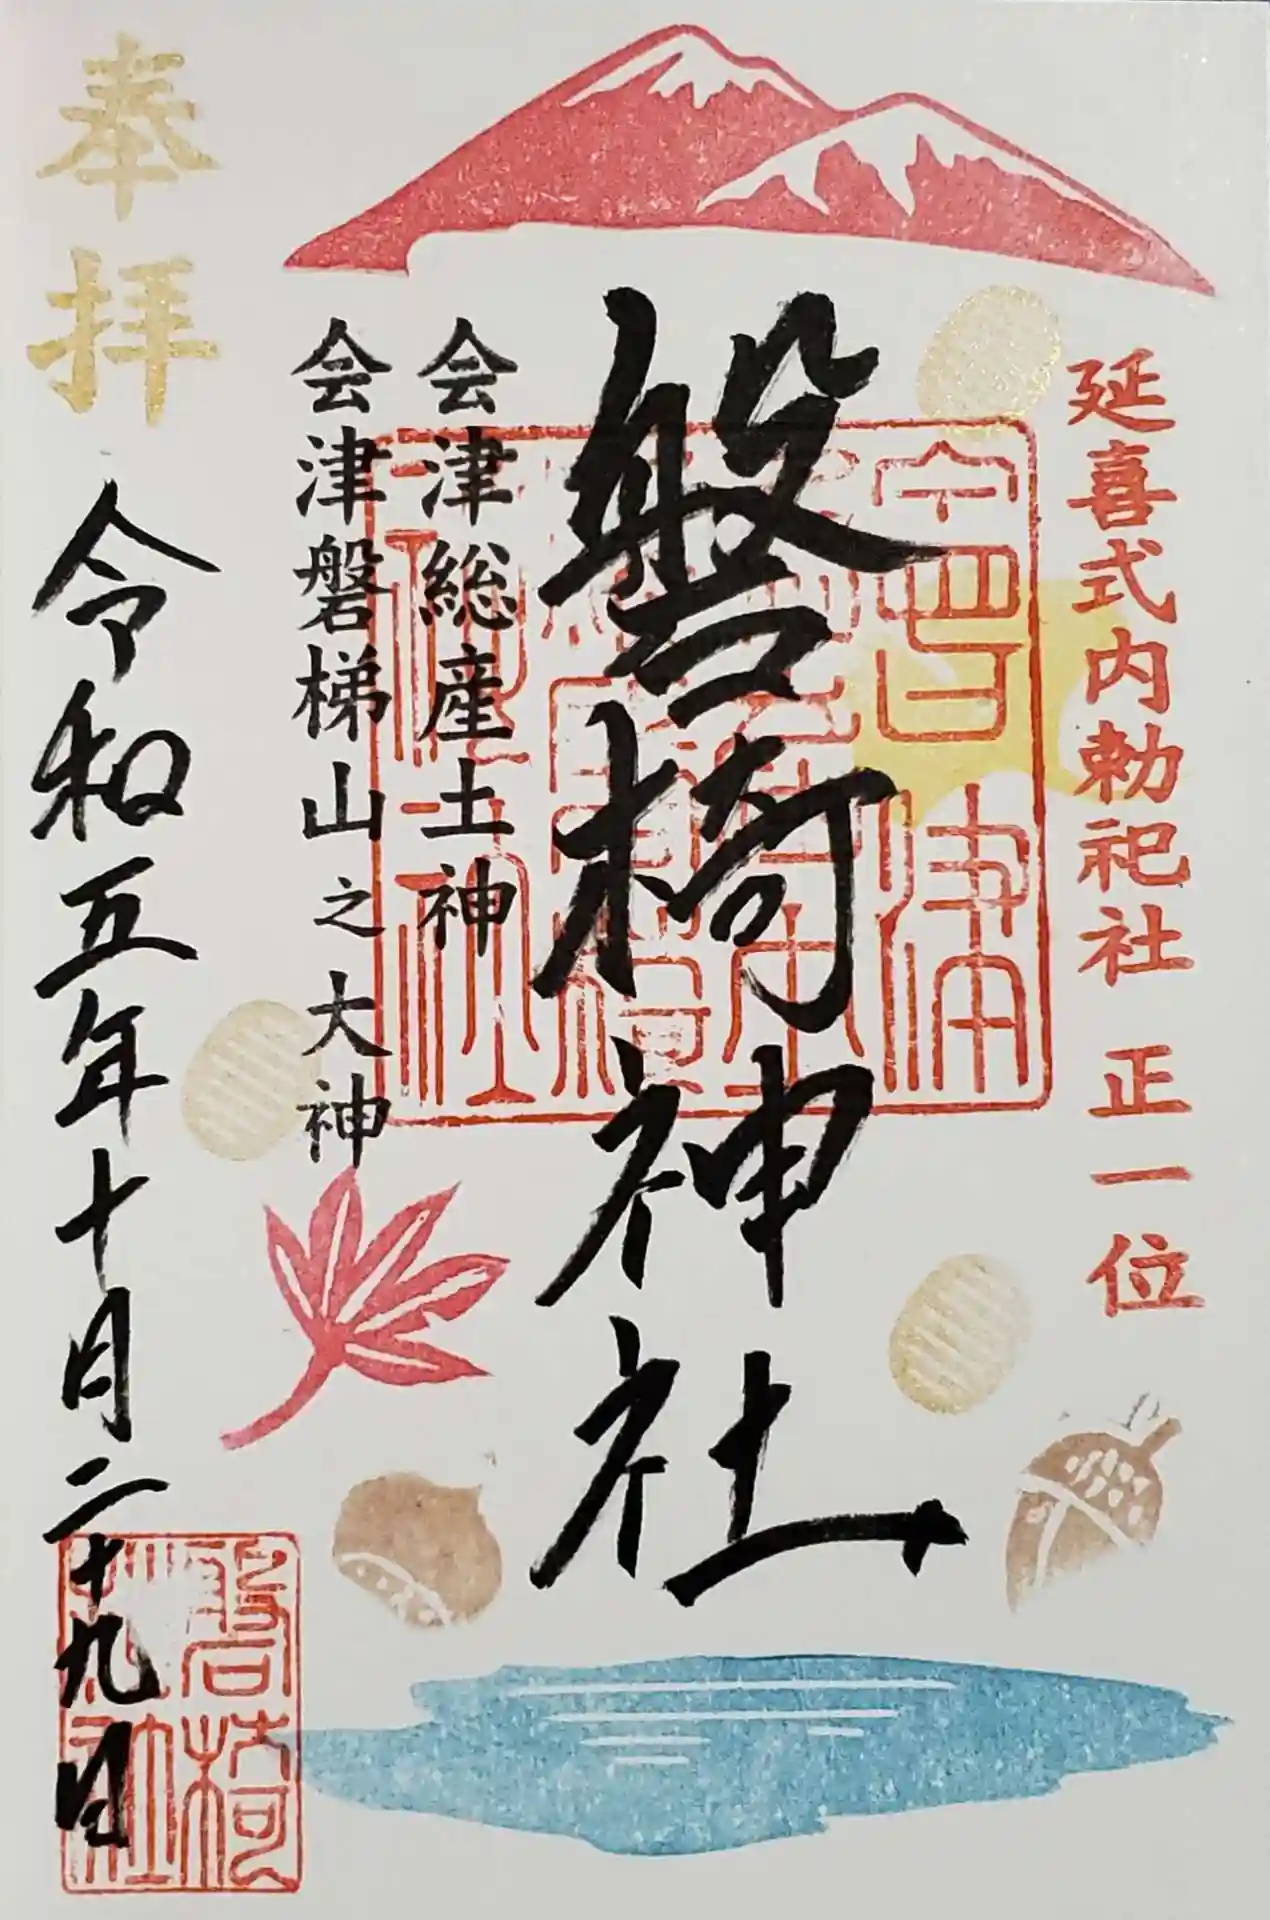 延喜式内勅祀社 正一位
磐椅神社
会津総産土神
会津磐梯山之大神
奉拝
令和五年十月二十九日
磐椅
神社